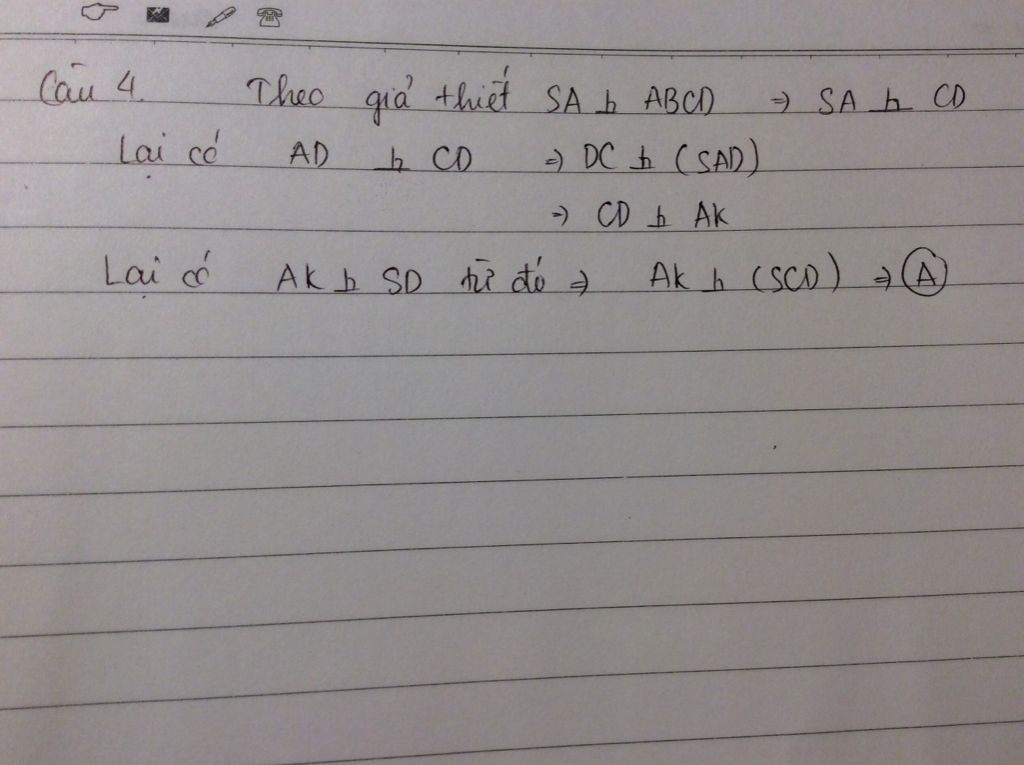 Câu 4. Theo giả thiết SA ⊥ ABCD ⇒ SA ⊥ CD
Lại có AD ⊥ CD ⇒ DC ⊥ (SAD)
⇒ CD ⊥ AK
Lại có AK ⊥ SD từ đó ⇒ AK ⊥ (SCD) ⇒ A